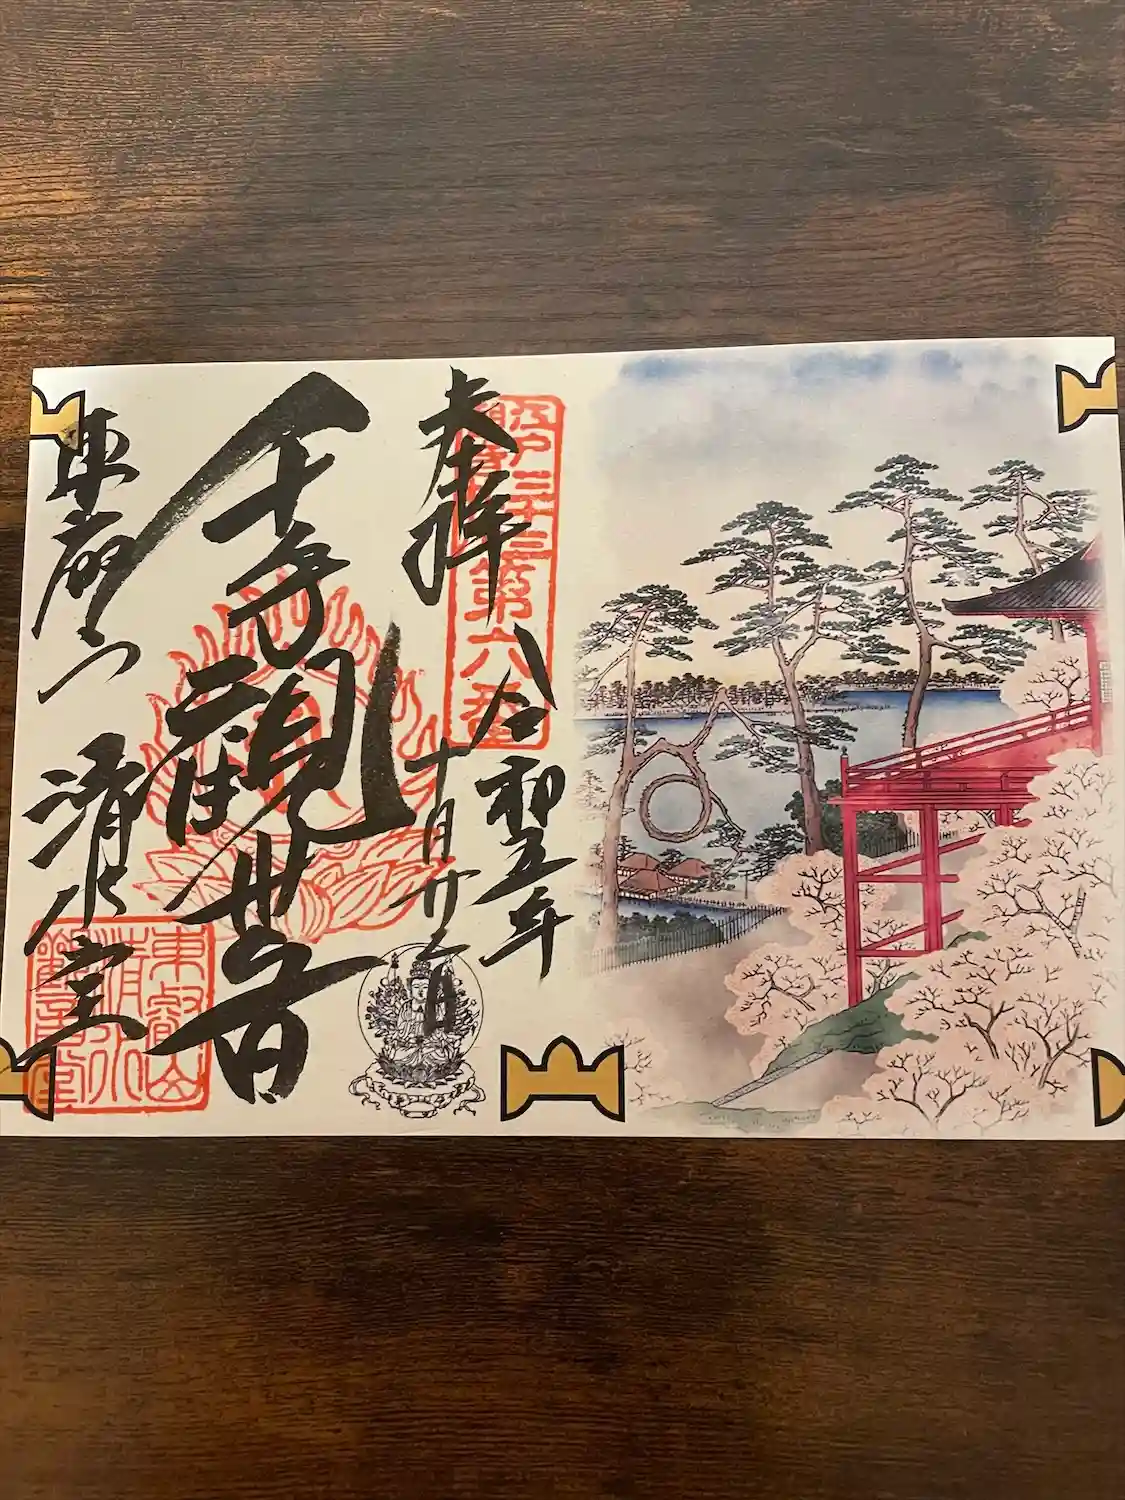 奉拝
江戸三十三
第六番
令和五年
千手観世音
東叡山 清水堂
東叡山
清水
觀音堂